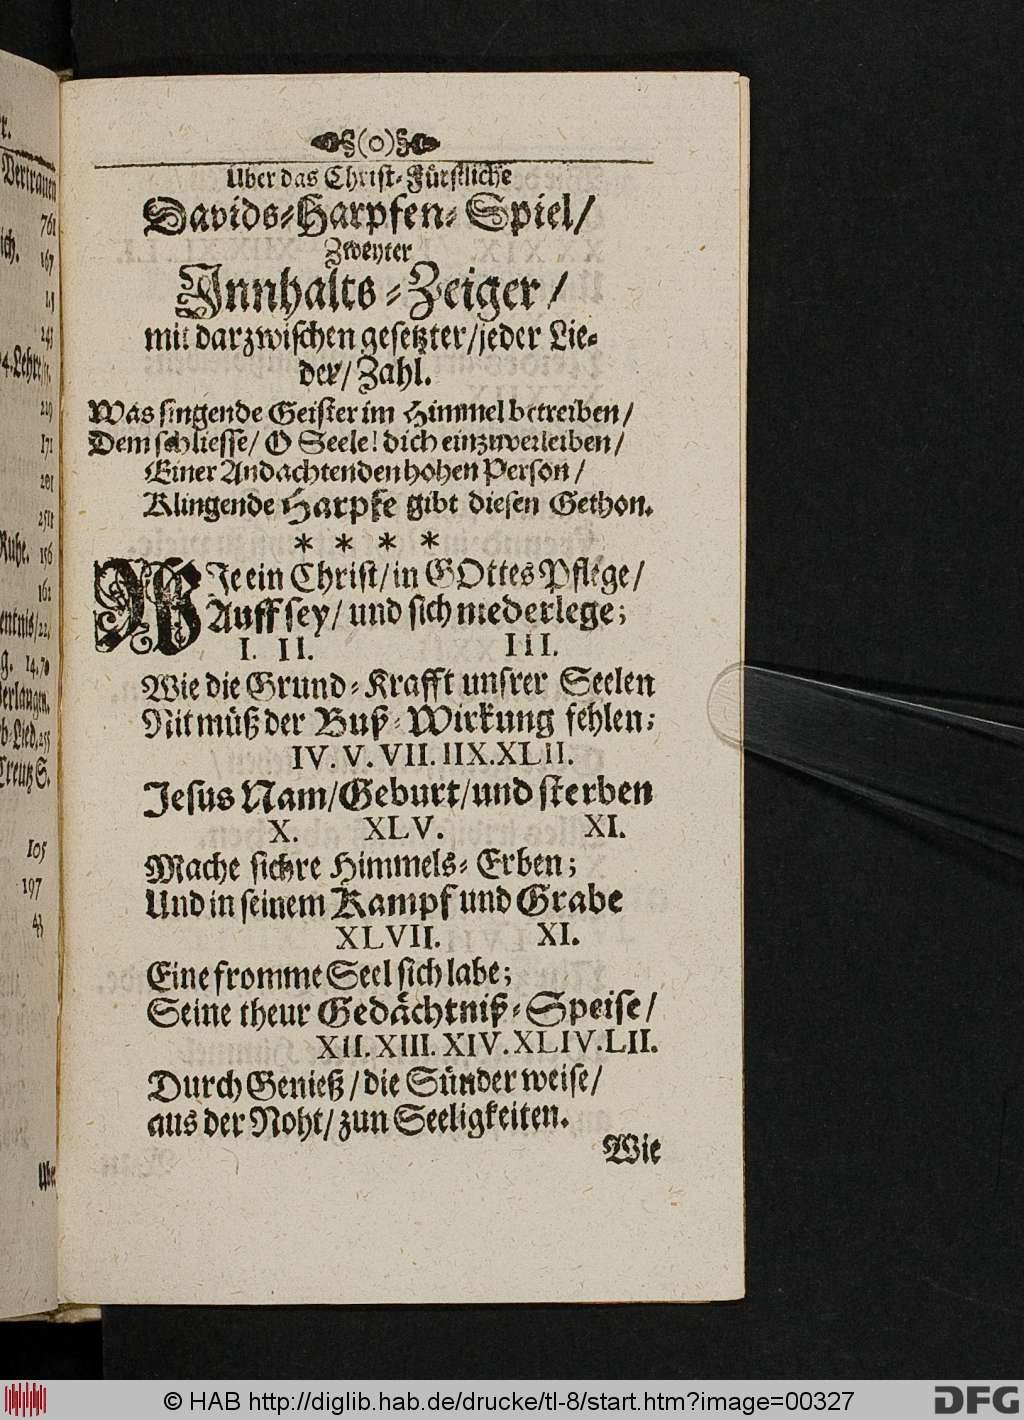 r.
Vertrauen
761
ich. 167
15
243
94. Lehre/
219
171
201
Ruhe. 156
161
14. 70
105
197
43
Uber
§(o)§
Uber das Christ-Fürstliche
Davids-Harpfen-Spiel/
Zweyter
Innhalts-Zeiger/
mit darzwischen gesetzter/jeder Lie-
der/Zahl.
Was singende Geister im Himmel betreiben/
Dem schliesse/ O Seele! dich einzuverleiben/
Einer Andachtenden hohen Person/
Klingende Harpfe gibt diesen Gethon.
* * * *
WJe ein Christ/in GOttes Pflege/
Auff sey/ und sich niederlege;
I. II. III.
Wie die Grund-Krafft unsrer Seelen
Nit müß der Buß-Wirkung fehlen;
IV. V. VII. IIX. XLII.
Jesus Nam/Geburt/und sterben
X. XLV. XI.
Mache sichre Himmels-Erben;
Und in seinem Kampf und Grabe
XLVII. XI.
Eine fromme Seel sich labe;
Seine theur Gedächtniß-Speise/
XII. XIII. XIV. XLIV. LII.
Durch Genieß/die Sünder weise/
aus der Noht/zun Seeligkeiten.
Wie
© HAB http://diglib.hab.de/drucke/tl-8/start.htm?image=00327
DFG